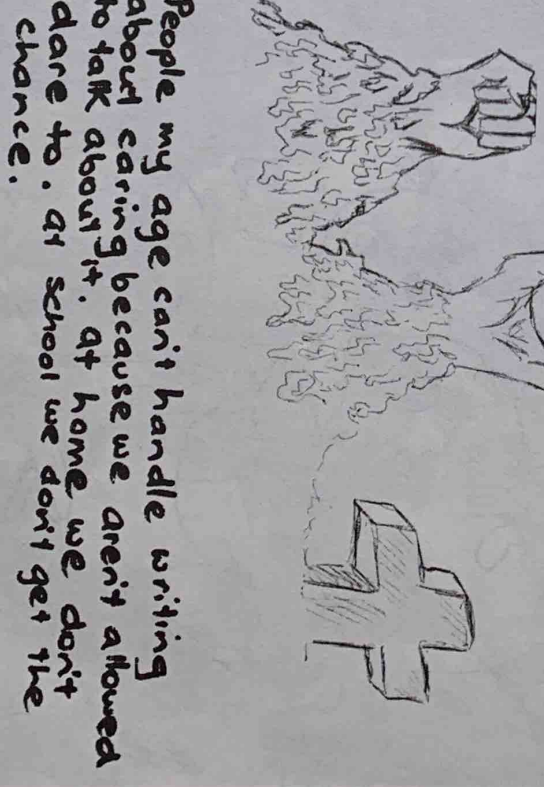 People my age can't handle writing
about caring because we aren't allowed
to talk about it. at home we don't
dare to. at school we don't get the
chance.